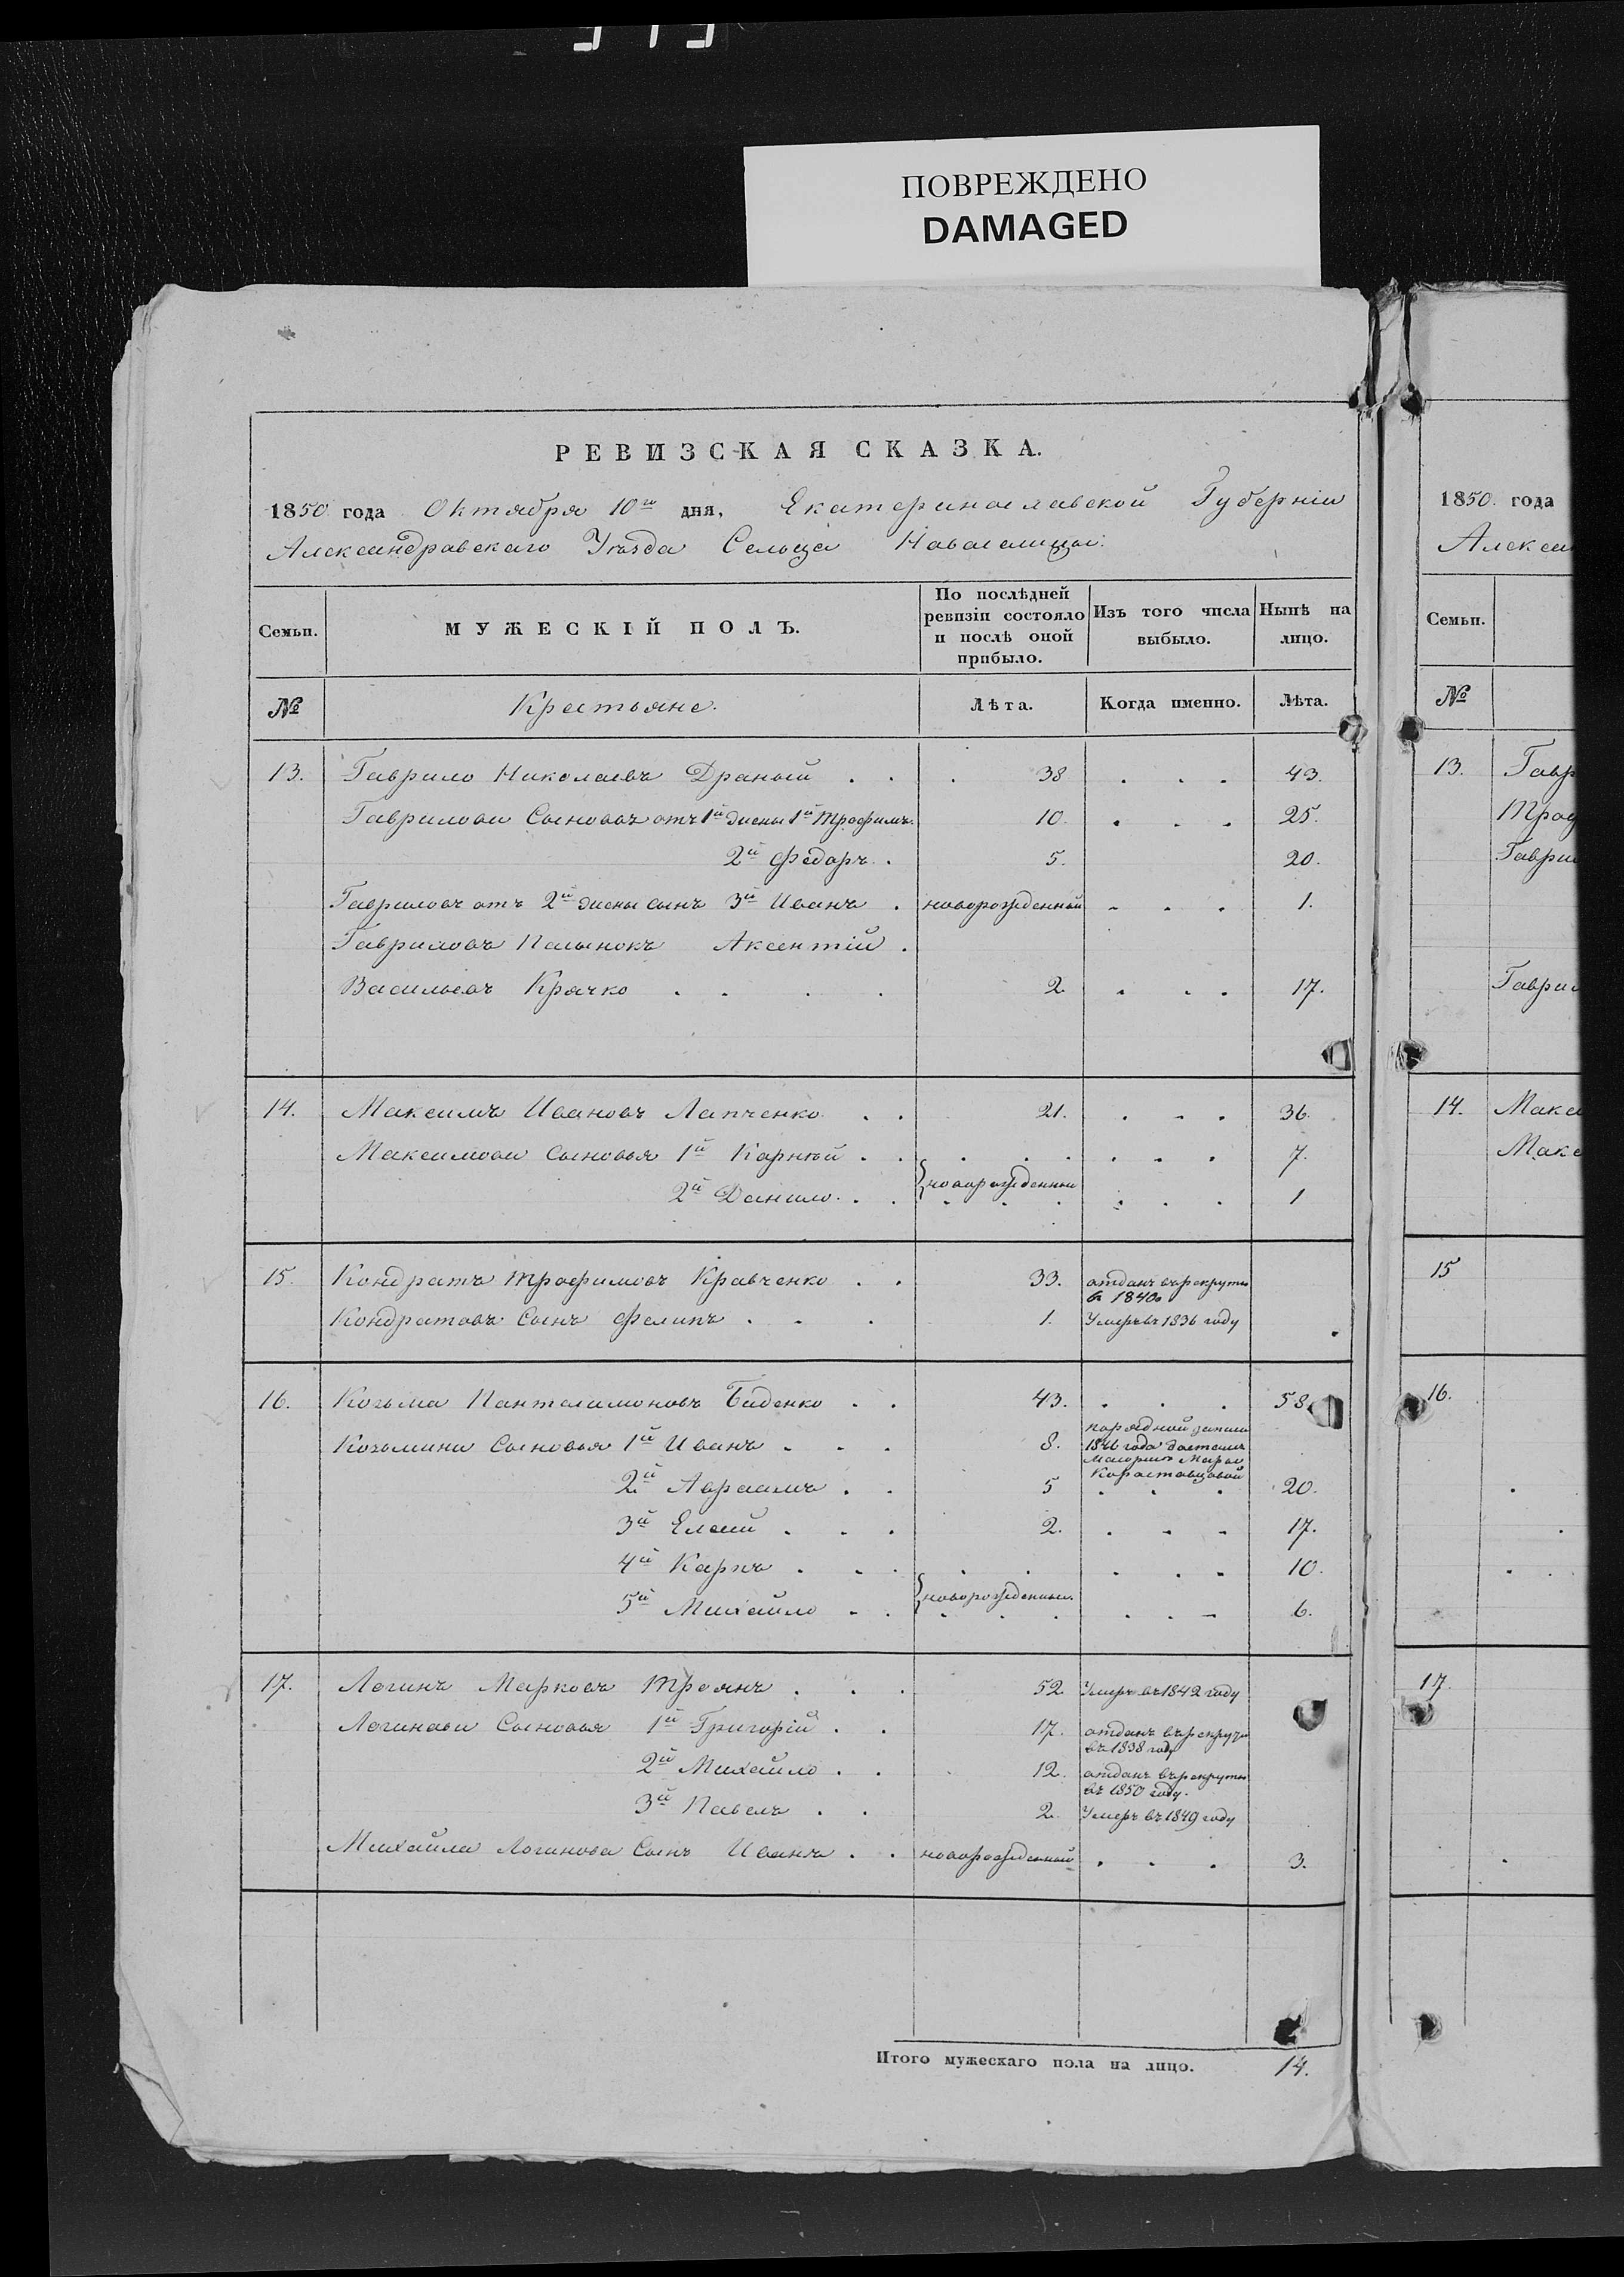 ПОВРЕЖДЕНО
DAMAGED
РЕВИЗСКАЯ СКАЗКА.
1850 года Октября 10го дня, Екатеринославской Губерніи
Александравскаго Уѣзда Сельца
Семьи. МУЖЕСКІЙ ПОЛЪ. По послѣдней ревизіи состояло и послѣ оной прибыло. Изъ того числа выбыло. Нынѣ на лицо.
№ Крестьяне. Лѣта. Когда именно. Лѣта.
13. Гаврило Николаевъ Драный . . . 38 . . . 43.
Гавриловы Сыновья отъ 1й жены 1й Трофимъ. 10. . . . 25.
2й Федаръ . 5. 20.
Гавриловъ отъ 2й жены сынъ 3й Иванъ . новорожденный . . . 1.
Гавриловъ Аксентій .
Васильевъ Крачко . . . . 2. . . . 17.
14. Максимъ Ивановъ Лапченко . . 21. . . . 36.
Максимовы Сыновья 1й Карнѣй . . . . . . . . 7.
2й Данило . . новорожденныи . . . 1
15. Кондратъ Трофимовъ Кравченко . . 33. атданъ въ рекруты
в 1840.
Кондратовъ Сынъ Филипъ . . . 1. Умеръ въ 1836 году
16. Козьма Пантелимоновъ Биденко . . 43. . . . 58.
Козьмины Сыновья 1й Иванъ . . . 8. порядной записи
1846 года
2й Авраамъ . . 5 . . . 20.
3й Елсий . . . 2. . . . 17.
4й Карпъ . . . . . . . . 10.
5й Михайло . . новорожденныи. . . . 6.
17. Логинъ Марковъ Троянъ . . . 52. Умеръ въ 1842 году
Логиновы Сыновья 1й Григорій . . 17. атданъ въ рекруты
въ 1838 году
2й Михайло . . 12. атданъ въ рекруты
въ 1850 году.
3й Павелъ . . 2. Умеръ въ 1849 году
Михайла Логинова Сынъ Иванъ . . новорожденный . . . 3.
Итого мужескаго пола на лицо. 14.
1850. года
Семьи.
№
13.
14.
15
16.
17.